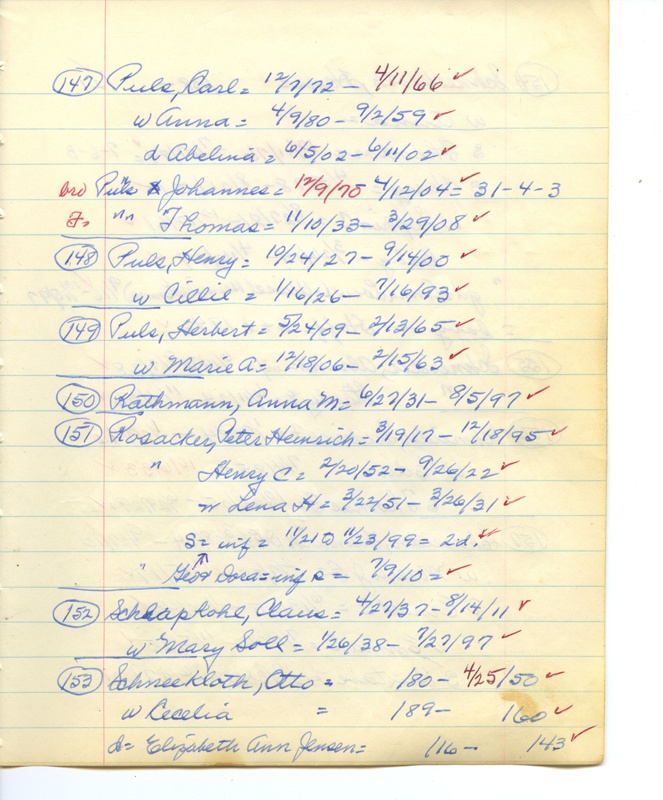 147 Puls, Carl = 12/7/72 - 4/11/66 ✓
w Anna = 4/9/80 - 9/2/59 ✓
d Abelina = 6/5/02 - 6/11/02 ✓
bro Puls Johannes = 12/9/70 4/12/04 = 31-4-3
F= " " Thomas = 11/10/33 - 3/29/08 ✓
148 Puls, Henry = 10/24/27 - 9/14/00 ✓
w Cillie = 1/16/26 - 7/16/93 ✓
149 Puls, Herbert = 5/24/09 - 2/13/65 ✓
w Marie A = 12/18/06 - 2/15/63 ✓
150 Rathmann, Anna M = 6/27/31 - 8/5/97 ✓
151 Rosacker, Peter Heinrich = 3/19/17 - 12/18/95 ✓
" Henry C = 2/20/52 - 9/26/22 ✓
w Lena H = 3/22/51 - 3/26/31 ✓
S = inf = 11/21 to 11/23/99 = 2d. ✓
" Dora = inf = 7/9/10 = ✓
152 Schlapkohl, Claus = 4/27/37 - 8/14/11 ✓
w Mary Soll = 1/26/38 - 7/27/97 ✓
153 Schneekloth, Otto = /80 - 4/25/50 ✓
w Cecelia = /89 - /60 ✓
d = Elizabeth Ann Jensen = /16 - /43 ✓